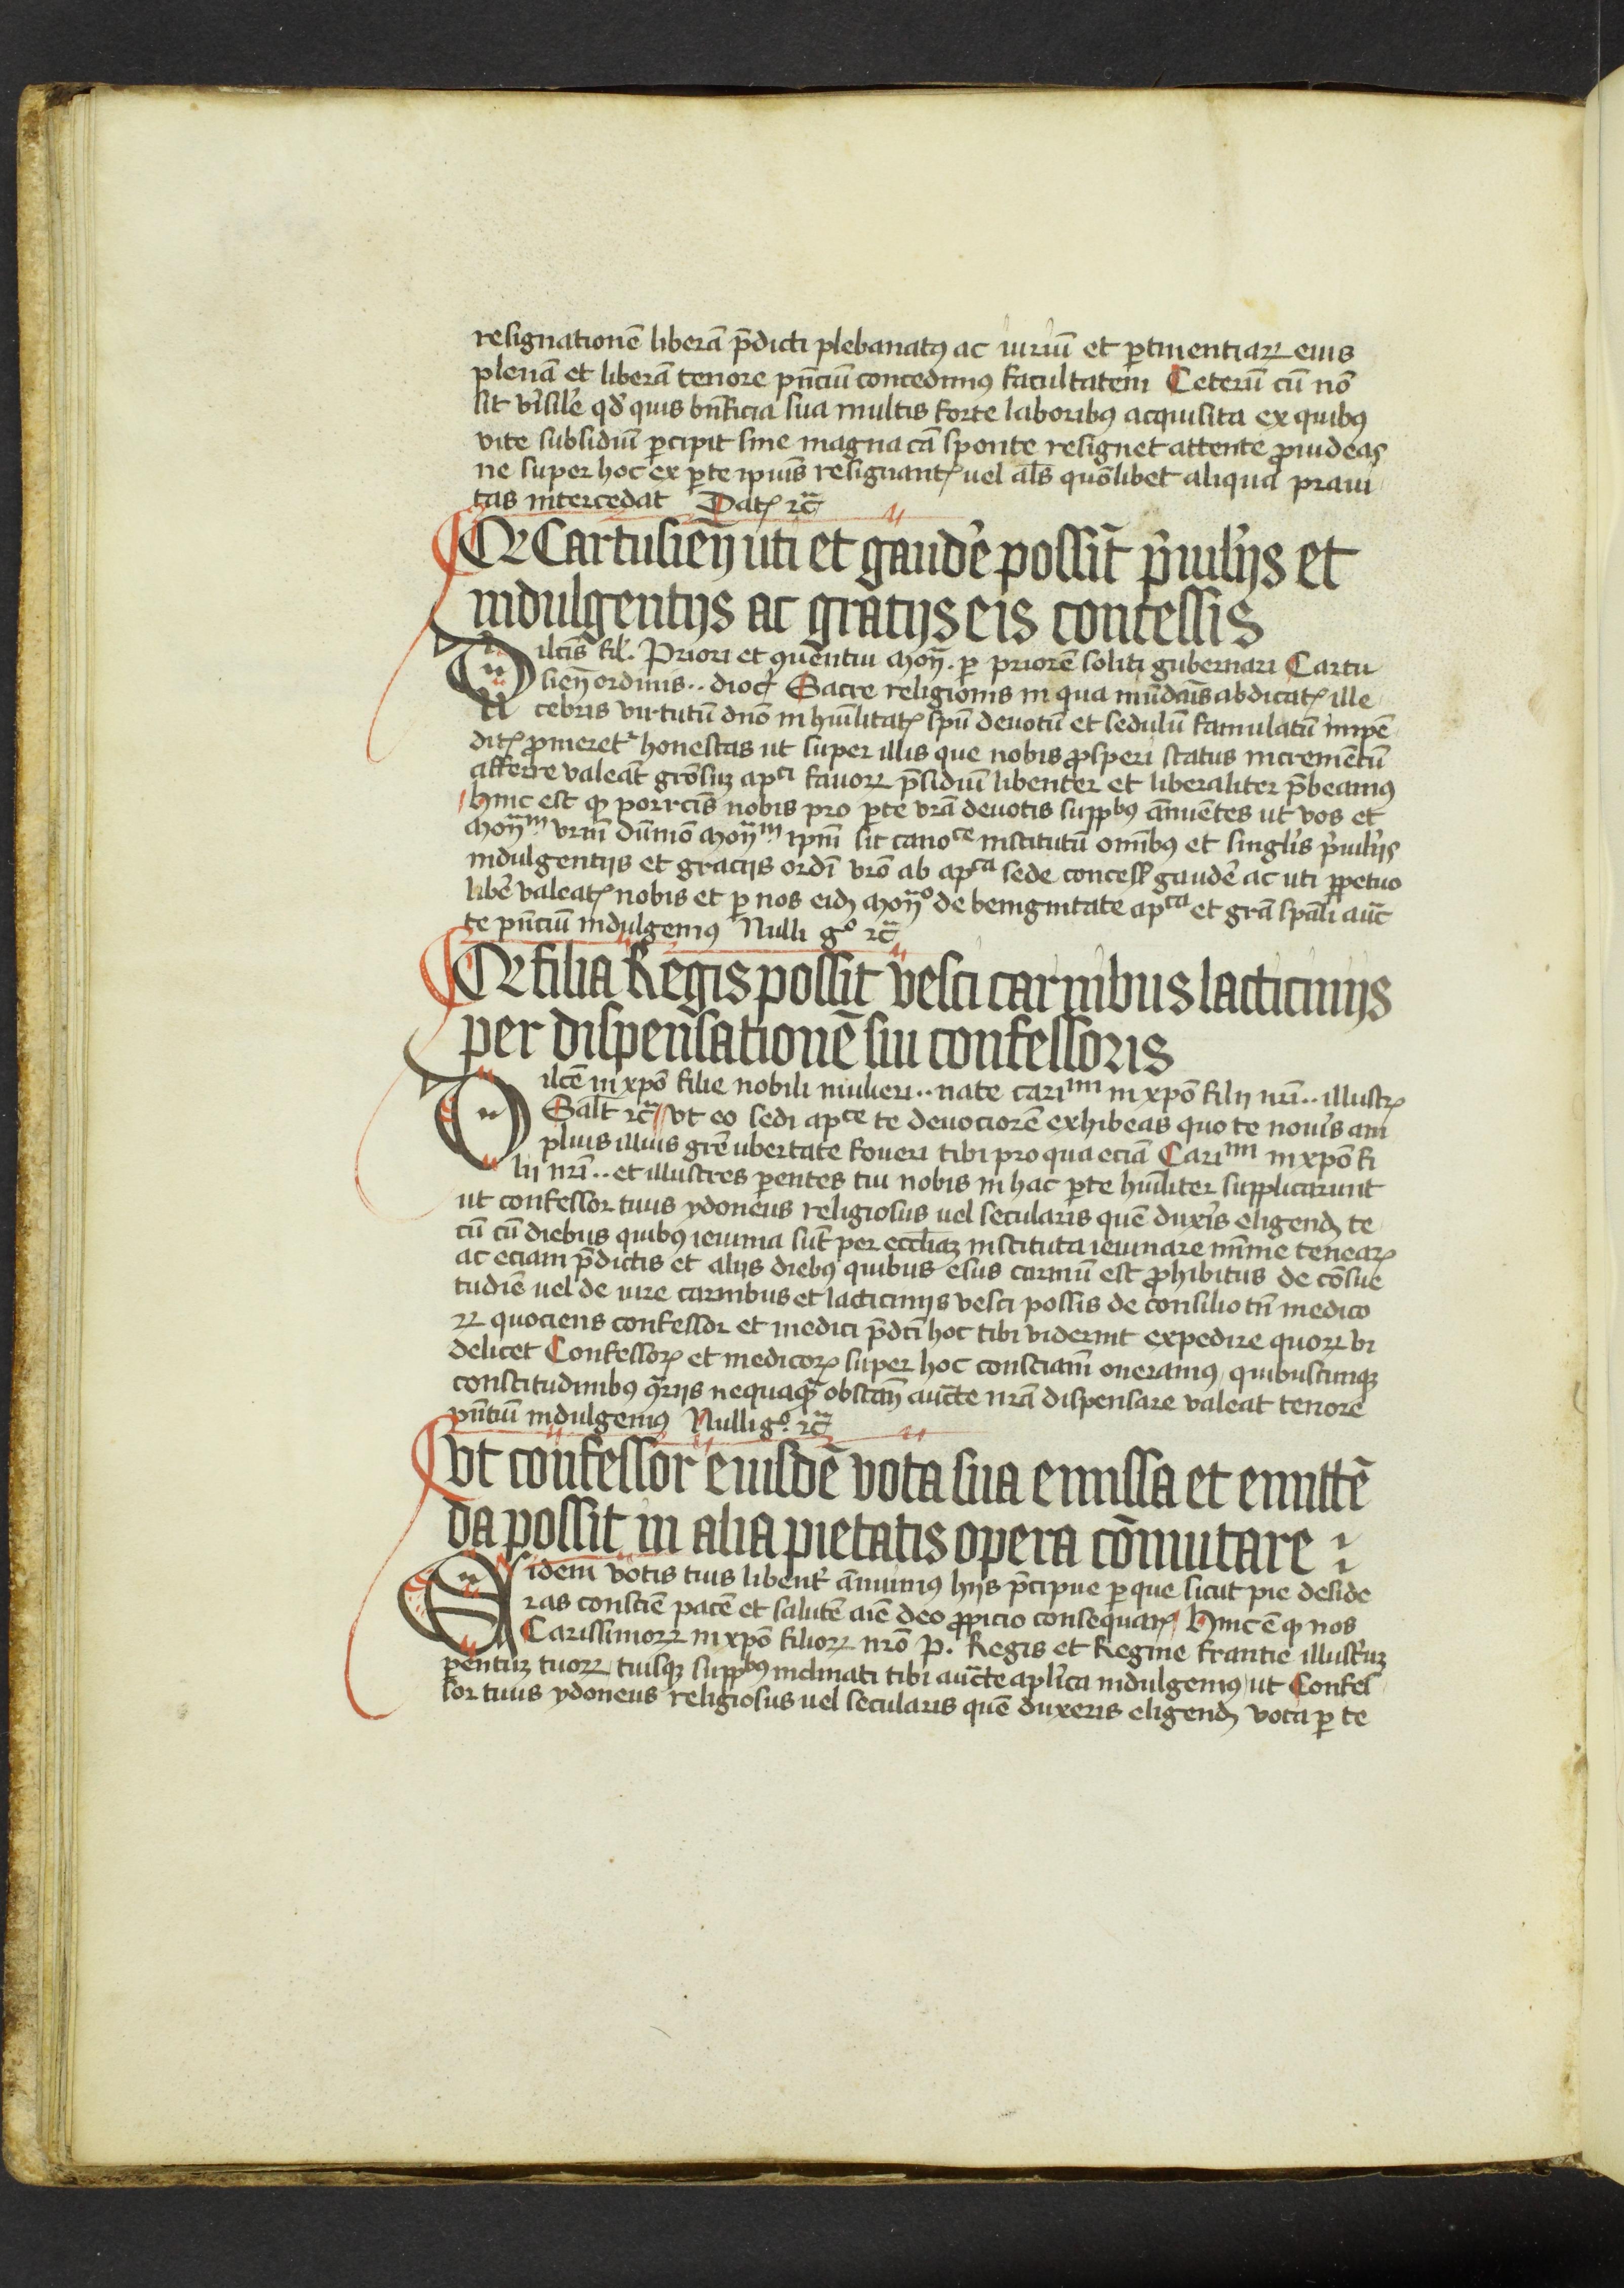 resignationē liberā p̄dicti plebanatꝰ ac iuriū et ꝑtinentiaꝝ eius
plenā et liberā tenore pn̄ciū concedimꝰ facultatem Ceterū cū nō
sit v̓isil̓e qd̓ quis bn̄ficia sua multis forte laboribꝰ acquisita ex quibꝰ
vite subsidiū ꝑcipit sine magna cā sponte resignet attente ꝓuideas
ne super hoc ex ꝑte ip̄ius resignantꝭ uel al̄s quōlibet aliqua praui
tas intercedat Datꝭ ⁊c̄
Qꝛ Cartusien̄ uti et gaud̓e possīt p̓uil̓ijs et
indulgentijs ac gratijs eis concessis
Dilcīs fil̓. Priori et ꝯuentui Moy̅. ꝑ priorē soliti gubernari Cartu
sien̄ ordinis .. dioc̄ Sacre religionis in qua mūdāis abdicatꝭ ille
cebris virtutū dn̄o in hūilitatꝭ sp̄u deuotū et sedulū famulatū impē
ditꝭ ꝓmeret᷑ honestas ut super illis que nobis ꝓsperi status incremētū
afferre valeāt grōsuꝫ apᶜⁱ fauoꝝ p̄sidiū libenter et liberaliter p̄beamꝰ
hinc est ꝙ porrcīs nobis pro ꝑte vr̄a deuotis suppᵇꝰ ānuētes ut vos et
Moy̅ᵐ vrm̄ dūmō Moy̅ᵐ ip̄m sit canoᶜᵉ institutū om̄ibꝰ et singl̓is p̓uil̓ijs
indulgentijs et gracijs ordī vr̄o ab apᶜᵃ sede concesſ gaud̓e ac uti ꝑpetuo
lib̓e valeatꝭ nobis et ꝑ nos eid̄ Moy̅ᵒ de benignitate apᶜᵃ et gr̄a sp̄ali auc̄
te pn̄ciū indulgemꝰ Nulli gᵒ ⁊c̄
Qꝛ filia Regis possit vesci carnibus lacticinijs
per dispensationē sui confessoris
Dilcē in xp̄o filie nobili mulieri .. nate cariᵐⁱ in xp̄o filij nr̄i .. illustrꝭ
Sal̄t ⁊c̄ Vt eo sedi apᶜᵉ te deuociorē exhibeas quo te nou̓is am
plius illius gr̄e ubertate foueri tibi pro qua eciā Cariᵐⁱ in xp̄o fi
lij nr̄i .. et illustres ꝑentes tui nobis in hac ꝑte hūiliter supplicarunt
ut confessor tuus ydoneus religiosus uel secularis quē dux̓is eligend̄ te
cū cū diebus quibꝰ ieiunia sūt per eccl̄iaꝫ instituta ieiunare mīme tenearꝭ
ac eciam p̄dictis et alijs diebꝰ quibus esus carniū est ꝓhibitus de cōsue
tudiē uel de iure carnibus et lacticinijs vesci possis de consilio tn̄ medico
ꝝ quociens confessor et medici p̄dcī hoc tibi viderint expedire quoꝝ vi
delicet Confessorꝭ et medicorꝭ super hoc consciam̄ oneramꝰ quibuscunqꝫ
constitudinibꝰ ꝯ̄rijs nequaqꝫ obstan̄ auc̄te nr̄a dispensare valeat tenore
pn̄tiū indulgemꝰ Nulli gᵒ. ⁊c̄
Vt confessor eiusdē vota sua emissa et emittē
da possit in alia pietatis opera cōmutare
Eidem votis tuis libent̓ ānuimꝰ hijs p̄cipue ꝑ que sicut pie deside
ras consciē pacē et salutē aīe deo ꝓpicio consequarꝭ Hinc ē ꝙ nos
Carissimoꝝ in xp̄o filioꝝ nr̄o P. Regis et Regine francie illustr̓iuꝫ
ꝑentuꝫ tuoꝝ tuisqꝫ suppᵇꝰ inclinati tibi auc̄te apl̓ica indulgemꝰ ut Confes
sor tuus ydoneus religiosus uel secularis quē duxeris eligend̄ vota ꝑ te